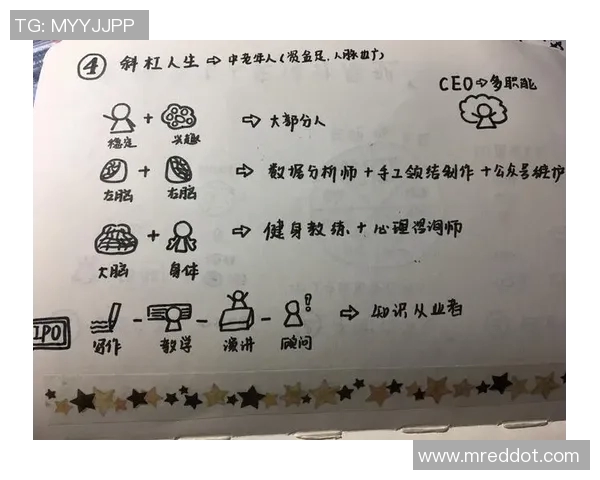 TG: MYYJJPP
④ 斜杠人生 ⇨ 中老年人(资金足,人脉广)
CEO⇨多职能
+ ⇨ 大部分人
稳定 兴趣
+ ⇨ 数据分析师+手工领结制作+公众号维护
左脑 右脑
+ ⇨ 健身教练+心理咨询师
大脑 身体
IPO - - - !? ⇨ 知识从业者
写作 教学 演讲 顾问
www.mreddot.com